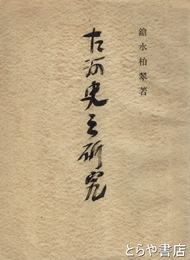 鎗水柏翠著
左沢史之研究
とらや書店